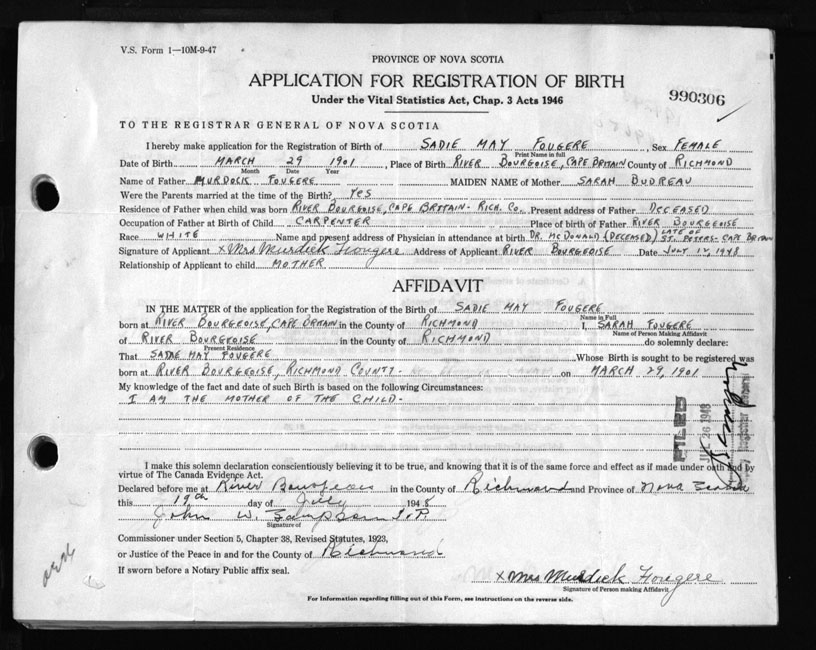 V.S. Form 1—10M-9-47
PROVINCE OF NOVA SCOTIA
APPLICATION FOR REGISTRATION OF BIRTH
Under the Vital Statistics Act, Chap. 3 Acts 1946
990306
TO THE REGISTRAR GENERAL OF NOVA SCOTIA
I hereby make application for the Registration of Birth of SADIE MAY FOUGERE, Sex FEMALE
Print Name in full
Date of Birth MARCH 29 1901, Place of Birth RIVER BOURGOISE, CAPE BRITAIN County of RICHMOND
Month Date Year
Name of Father MURDOCK FOUGERE MAIDEN NAME of Mother SARAH BUDREAU
Were the Parents married at time of the Birth? YES
Residence of Father when child was born RIVER BOURGOISE, CAPE BRITAIN - RICH. CO. Present address of Father DECEASED
Occupation of Father at Birth of Child CARPENTER Place of birth of Father RIVER BOURGEOISE
Race WHITE Name and present address of Physician in attendance at birth DR. McDONALD (DECEASED) LATE OF ST. PETERS - CAPE BRITAIN
Signature of Applicant x Mrs Murdick Fougere Address of Applicant RIVER BOURGEOISE Date JULY 14, 1948
Relationship of Applicant to child MOTHER
AFFIDAVIT
IN THE MATTER of the application for the Registration of the Birth of SADIE MAY FOUGERE
Name in Full
born at RIVER BOURGEOISE, CAPE BRITAIN in the County of RICHMOND I, SARAH FOUGERE
Name of Person Making Affidavit
of RIVER BOURGEOISE in the County of RICHMOND do solemnly declare:
Present Residence
That SADIE MAY FOUGERE Whose Birth is sought to be registered was
born at RIVER BOURGEOISE, RICHMOND COUNTY - on MARCH 29, 1901
My knowledge of the fact and date of such Birth is based on the following Circumstances:
I AM THE MOTHER OF THE CHILD -
FILED
JUL 26 1948
I make this solemn declaration conscientiously believing it to be true, and knowing that it is of the same force and effect as if made under oath and by
virtue of The Canada Evidence Act.
Declared before me at River Bourgeois in the County of Richmond and Province of Nova Scotia
this 19th day of July 1948
John W. Sampson J.P.
Signature of
Commissioner under Section 5, Chapter 38, Revised Statutes, 1923,
or Justice of the Peace in and for the County of Richmond
If sworn before a Notary Public affix seal.
x Mrs Murdick Fougere
Signature of Person making Affidavit
For Information regarding filling out of this Form, see instructions on the reverse side.